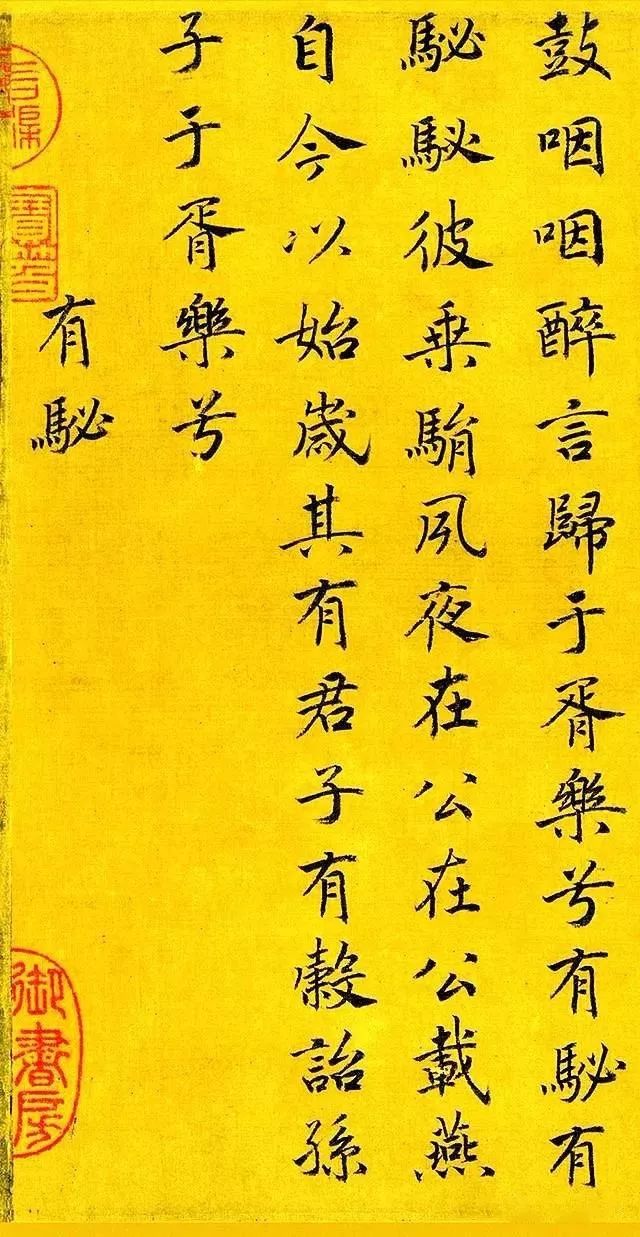 鼓咽咽醉言歸于胥樂兮有駜有
駜駜彼乗駽夙夜在公在公載燕
自今以始歲其有君子有穀詒孫
子于胥樂兮
有駜
御書房